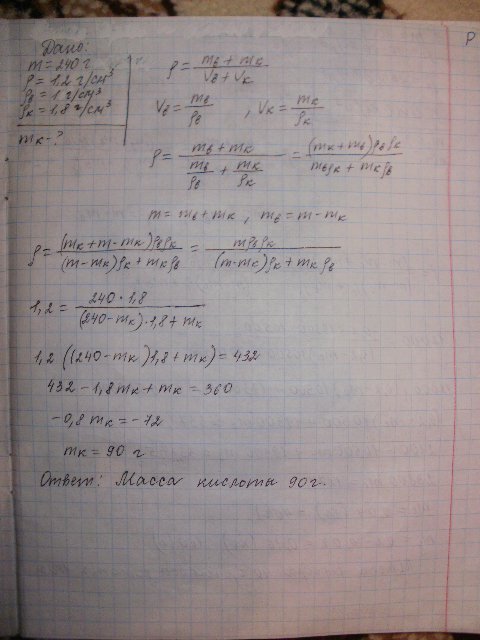 P
Дано:
m = 240 г
ρ = 1,2 г/см³
ρв = 1 г/см³
ρк = 1,8 г/см³
mк - ?
ρ = (mв + mк) / (Vв + Vк)
Vв = mв / ρв , Vк = mк / ρк
ρ = (mв + mк) / (mв/ρв + mк/ρк) = (mк + mв)ρвρк / (mвρк + mкρв)
m = mв + mк , mв = m - mк
ρ = (mк + m - mк)ρвρк / ((m - mк)ρк + mкρв) = mρвρк / ((m - mк)ρк + mкρв)
1,2 = 240 · 1,8 / ((240 - mк) · 1,8 + mк)
1,2 ((240 - mк) 1,8 + mк) = 432
432 - 1,8 mк + mк = 360
-0,8 mк = -72
mк = 90 г
Ответ: Масса кислоты 90 г.